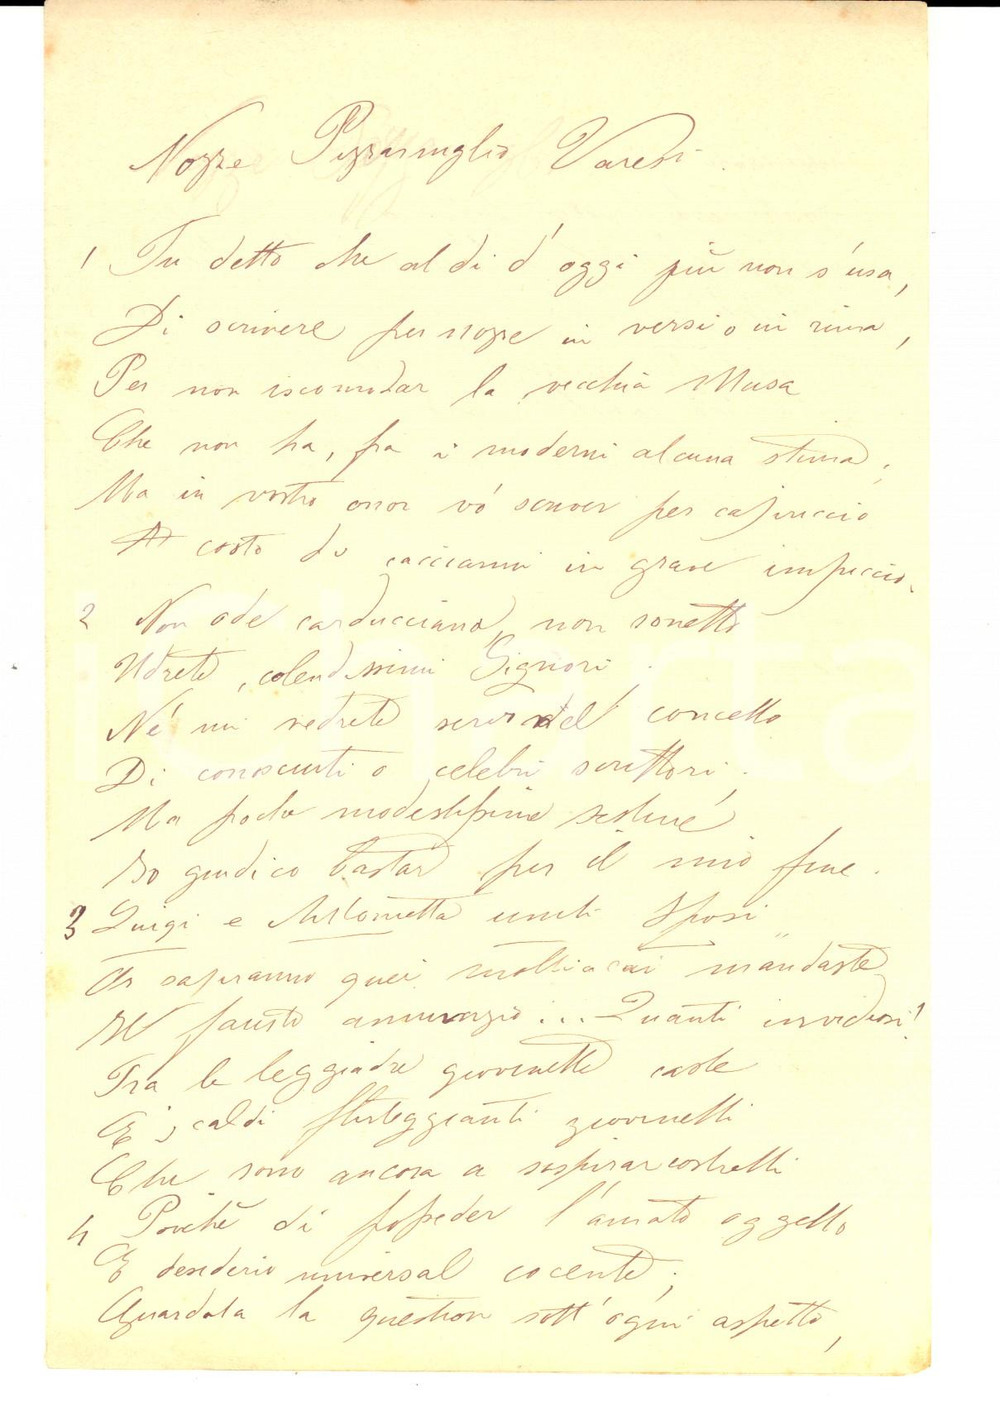 Nozze Pizzamiglio Varesi.
1 Fu detto che al dì d'oggi più non s'usa,
Di scrivere per nozze in versi o in rima,
Per non iscomodar la vecchia Musa
Che non ha, fra i moderni alcuna stima;
Ma in vostro onor vò scriver per capriccio
A costo di cacciarmi in grave impiccio.
2 Non ode carducciana, non sonetto
Udrete, colendissimi Signori.
Né mi vedrete servir del concetto
Di conosciuti o celebri scrittori.
Ma poche modestissime sestine
Io giudico bastar per il mio fine.
3 Luigi e Antonietta uniti Sposi
A saperanno quei molti a cui mandaste
Il fausto annunzio... Quanti invidiosi!
Tra le leggiadre giovinette caste
E i caldi flirteggianti giovinetti
Che sono ancora a sospirar costretti
4 Poiché di posseder l'amato oggetto
È desiderio universal cocente;
Guardata la question sott'ogni aspetto,